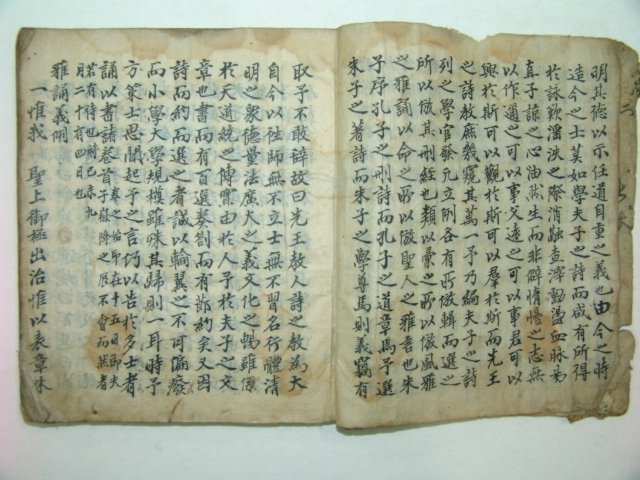 明其德以示任道自重之義也由今之時
造今之士莫如學夫子之詩而咸有所得
於詠歎滛泆之際消融查滓動盪血脉易
直子諒之心油然生而非辟惰慢之志無
以作邇之可以事父遠之可以事君可以
興於斯可以觀於斯可以羣於斯而先王
之詩教庶幾窺其萬一予乃編夫子之詩
列之學官發凡立例各有所倣輯而選之
所以倣其刪經也類以彙之所以倣風雅
之雅誦以命之所以倣聖人之雅言也朱
子序孔子之刪詩而孔子之道章焉予選
朱子之著詩而朱子之學尊焉則義竊有
取予不敢辭故曰先王教人詩之教為大
自今以往師無不立士無不習名行體清
明之衆德量法廣大之義文化之暢雖係
於天道統之傳實由於人予於夫子之文
章也書而有百選類劄而有節約矣又因
詩而約而選之者誠以輪翼之不可偏廢
而小學大學規模雖殊其歸則一耳時予
方策士思聞起予之言仍以告於多士者
誦以書諸卷首
在十五日即夫
子蘇降之辰不會而然者
若有待也時己未九
月二十有四日也
雅誦義例
一惟我 聖上御極出治惟以表章朱